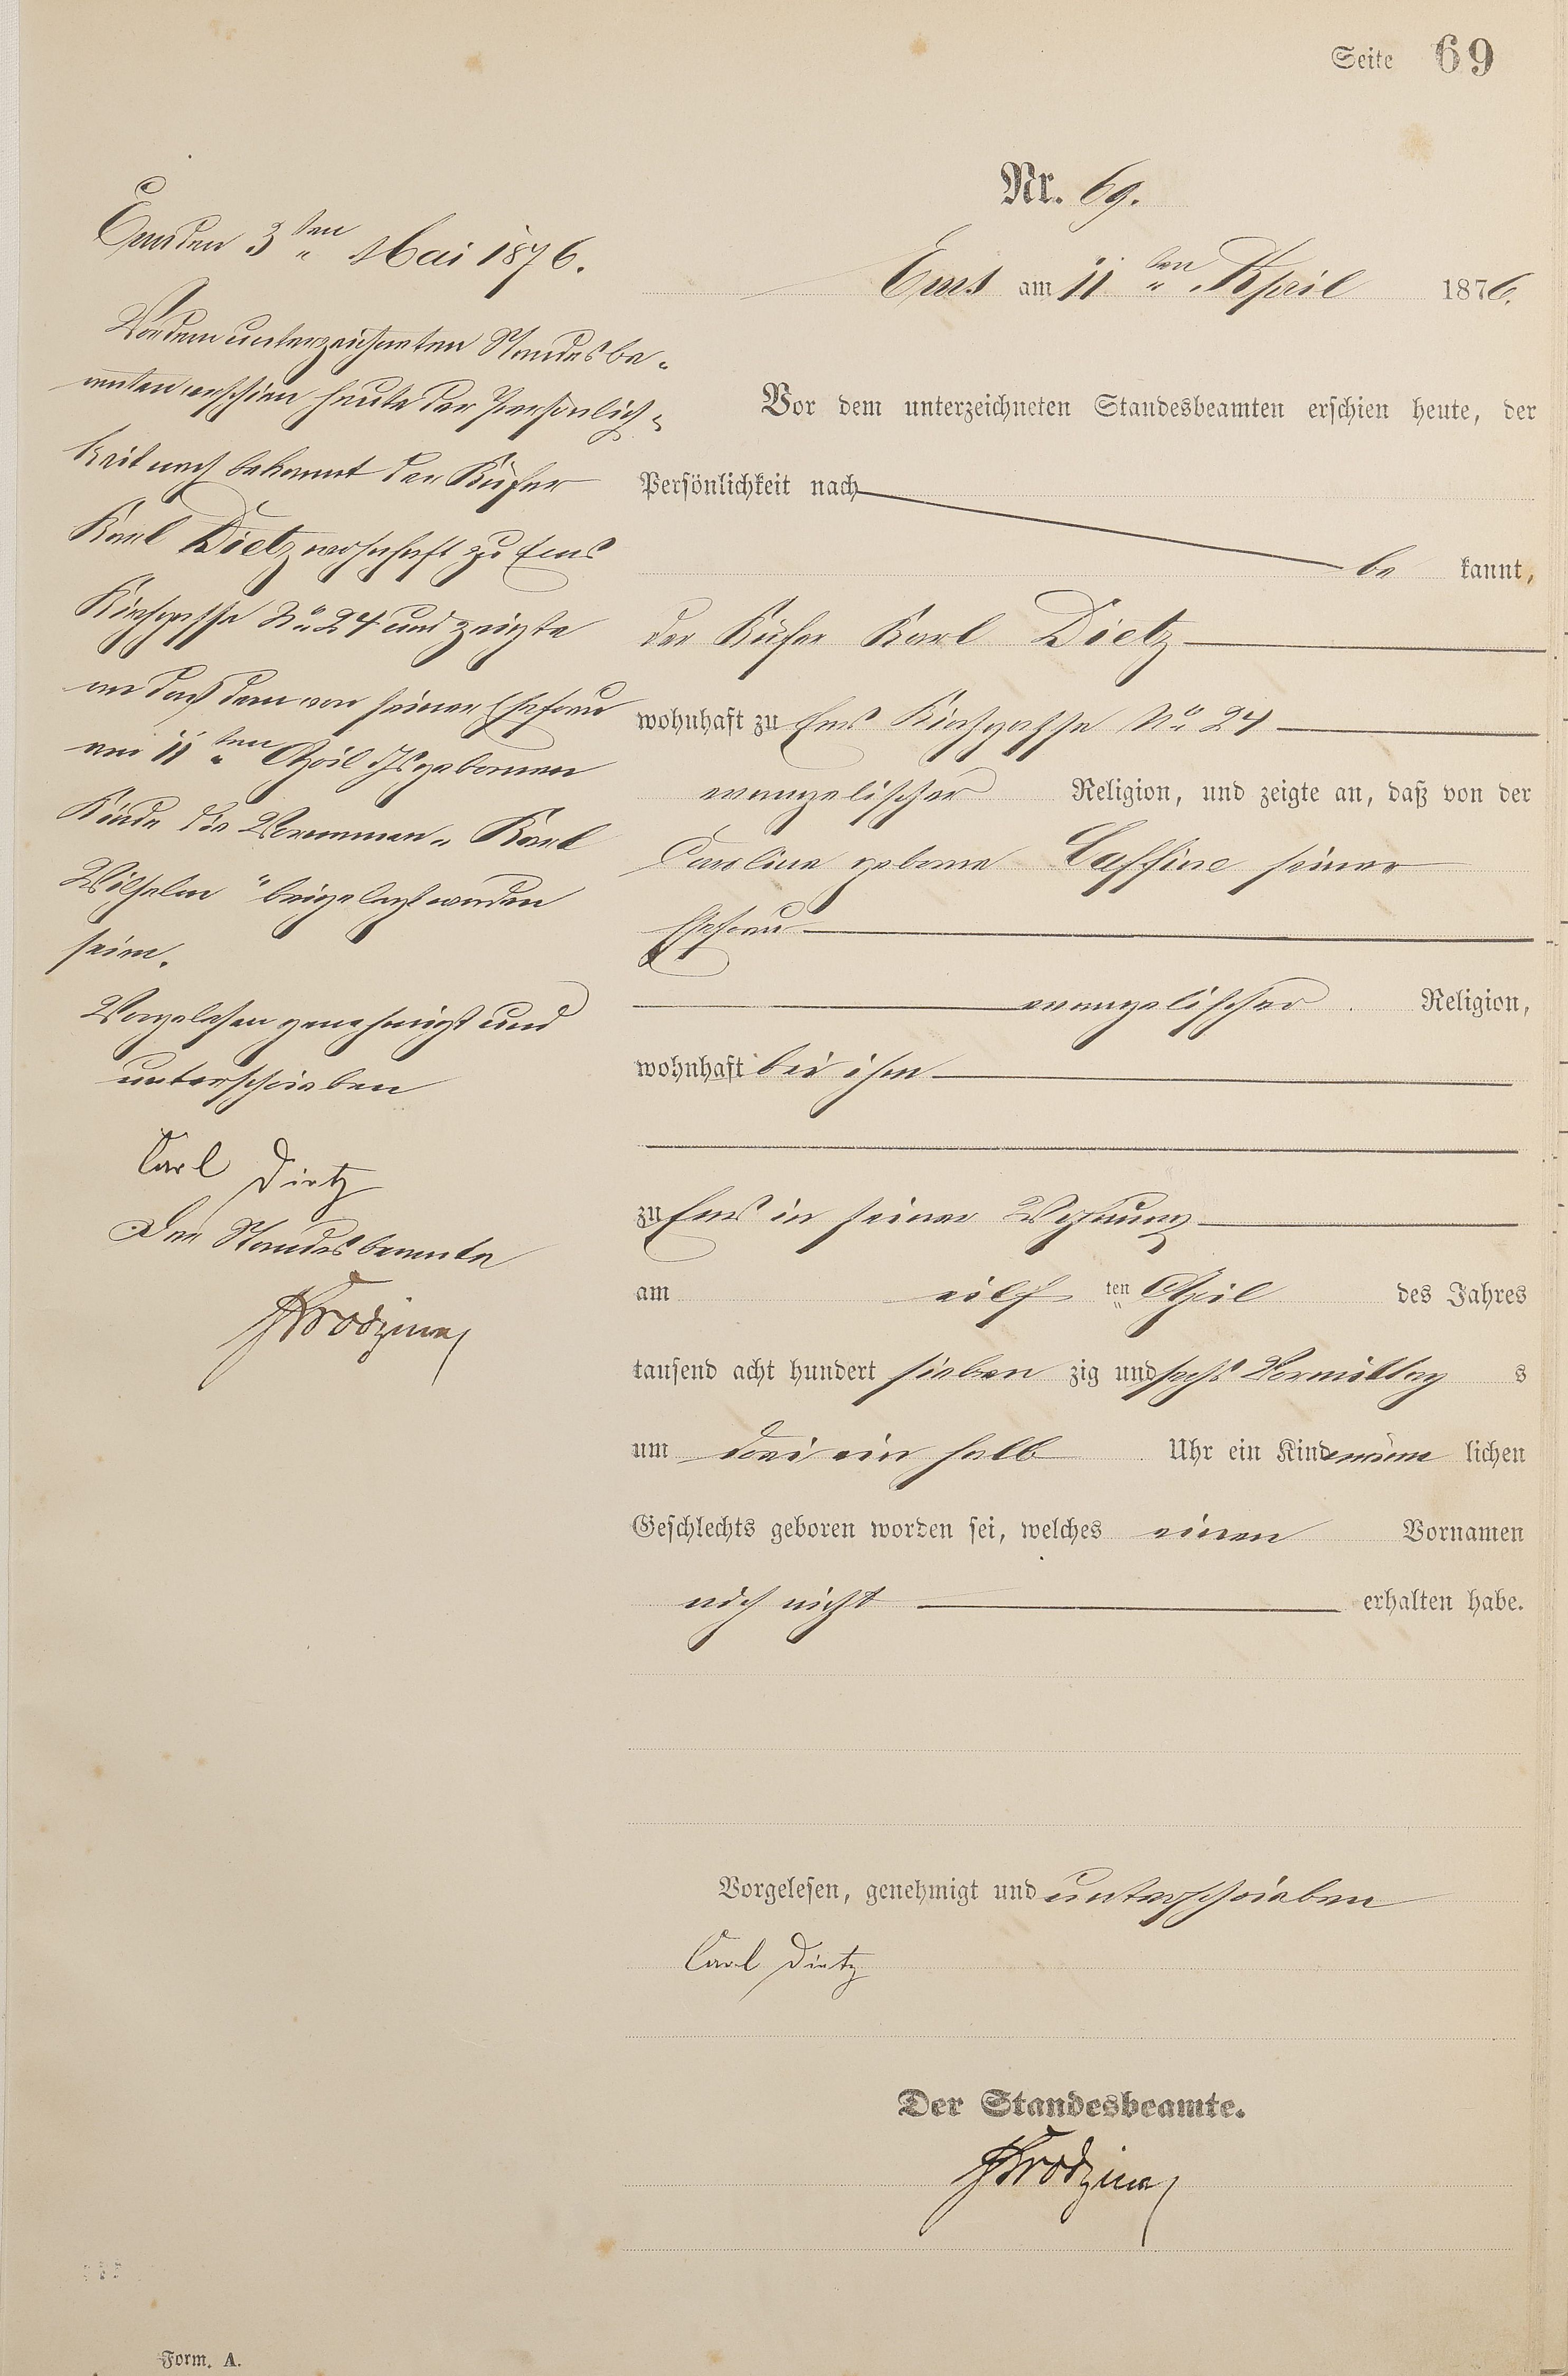 Seite 69
Nr. 69.
Ems am 11ten April 1876.
Vor dem unterzeichneten Standesbeamten erschien heute, der
Persönlichkeit nach
be kannt,
der Küfer Karl Dietz
wohnhaft zu Ems Kirchgasse No 24
evangelischer Religion, und zeigte an, daß von der
Caroline geborne Caffine seiner
Ehefrau
evangelischer Religion,
wohnhaft bei ihm
zu Ems in seiner Wohnung
am eilf ten April des Jahres
tausend acht hundert sieben zig und sechs Vormittag s
um drei ein halb Uhr ein Kind männ lichen
Geschlechts geboren worden sei, welches einen Vornamen
noch nicht erhalten habe.
Vorgelesen, genehmigt und unterschrieben
Carl Dietz
Der Standesbeamte.
Ems den 3ten Mai 1876.
Vor dem unterzeichneten Standesbe-
amten erschien heute der Persönlich-
keit nach bekannt der Küfer
Karl Dietz wohnhaft zu Ems
Kirchgasse No 24 und zeigte
an daß dem von seiner Ehefrau
am 11ten April Js gebornen
Kinde die Vornamen „Karl
Wilhelm" beigelegt worden
seien.
Vorgelesen genehmigt und
unterschrieben
Carl Dietz
Der Standesbeamte
Form. A.